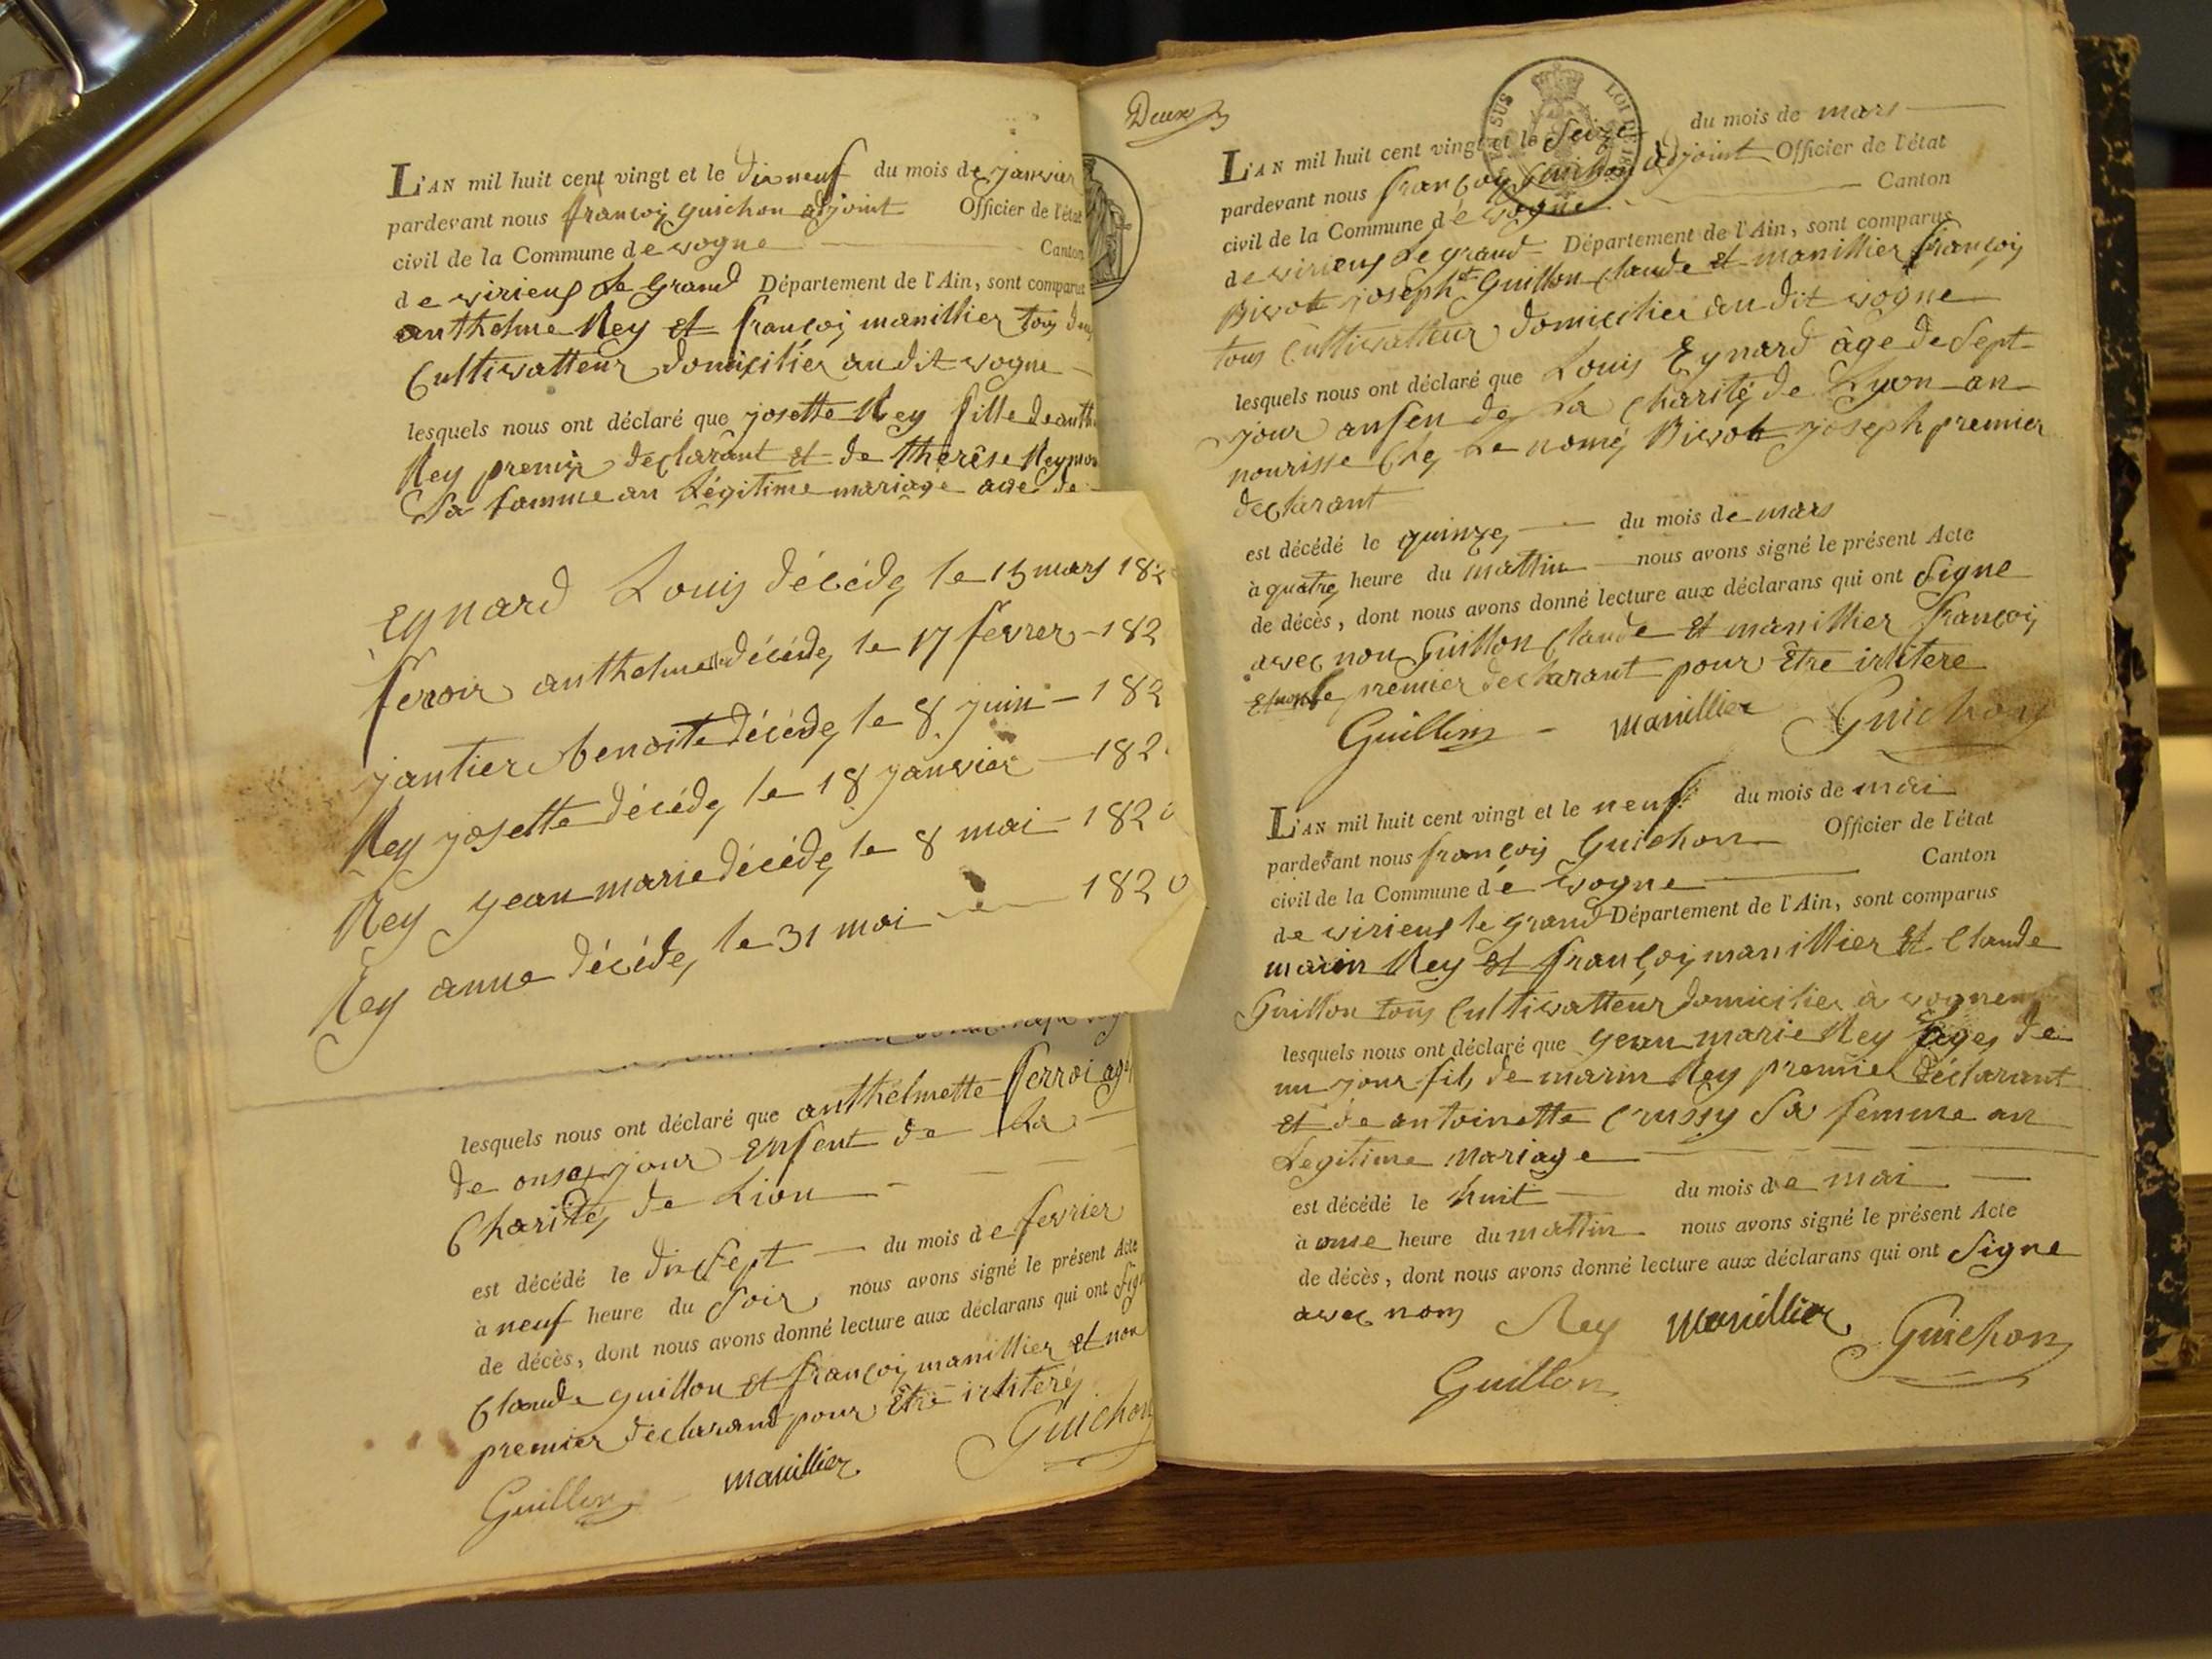 L'AN mil huit cent vingt et le dix neuf du mois de janvier
pardevant nous françois guichon adjoint Officier de l'état
civil de la Commune de vogne Canton
de virieux le grand Département de l'Ain, sont comparus
anthelme Rey et françois manillier tous deux
Cultivatteur domicilies au dit vogne
lesquels nous ont déclaré que josette Rey fille de anth
Rey premier declarant et de therèse Rey
Sa famme an Légitime mariage agé de
Eynard Louis décédé le 15 mars 182
ferroir anthelmette décédé le 17 fevrer - 182
jantier benoite décédé le 8 juin - 182
Rey josette décédé le 18 janvier - 182
Rey jean marie décédé le 8 mai - 1820
Rey anne décédé le 31 mai 1820
lesquels nous ont déclaré que anthelmette ferroi agé
de onse jour enfent de La
Charité de Lion
est décédé le dix sept du mois de fevrier
à neuf heure du Soir nous avons signé le présent Acte
de décès, dont nous avons donné lecture aux déclarans qui ont Sign
Claude guillon et françois manillier et non
premier declarand pour être iditeré
Guillon manillier Guichon
Deux
VU SUS LOI DE 18
L'AN mil huit cent vingt et le Seize du mois de mars
pardevant nous françois Guichon adjoint Officier de l'état
civil de la Commune dé vogne Canton
de virieux Le grand Département de l'Ain, sont comparus
Bivot joseph et Guillon claude et manillier françois
tous Cultivatteur domicilies au dit vogne
lesquels nous ont déclaré que Louis Eynard âge de Sept
jour anfen de La Charité de Lyon an
nourisse Ché Le nomé Bivot joseph premier
declarant
est décédé le quinze du mois de mars
à quatre heure du mattin nous avons signé le présent Acte
de décès, dont nous avons donné lecture aux déclarans qui ont Signe
avec nou Guillon Claude et manillier françois
et non le premier declarant pour être irlitere
Guillon - manillier Guichon
L'AN mil huit cent vingt et le neuf du mois de mai
pardevant nous françois Guichon Officier de l'état
civil de la Commune dé vogne Canton
de virieux le grand Département de l'Ain, sont comparus
marin Rey et françois manillier et Claude
Guillon tous Cultivatteur domicilies à vogne
lesquels nous ont déclaré que jean marie Rey âges de
un jour fils de marin Rey premier déclarant
et de antoinette Crussy Sa femme an
Legitime mariage
est décédé le huit du mois de mai
à onse heure du mattin nous avons signé le présent Acte
de décès, dont nous avons donné lecture aux déclarans qui ont Signe
avec nous Rey manillier Guichon
Guillon